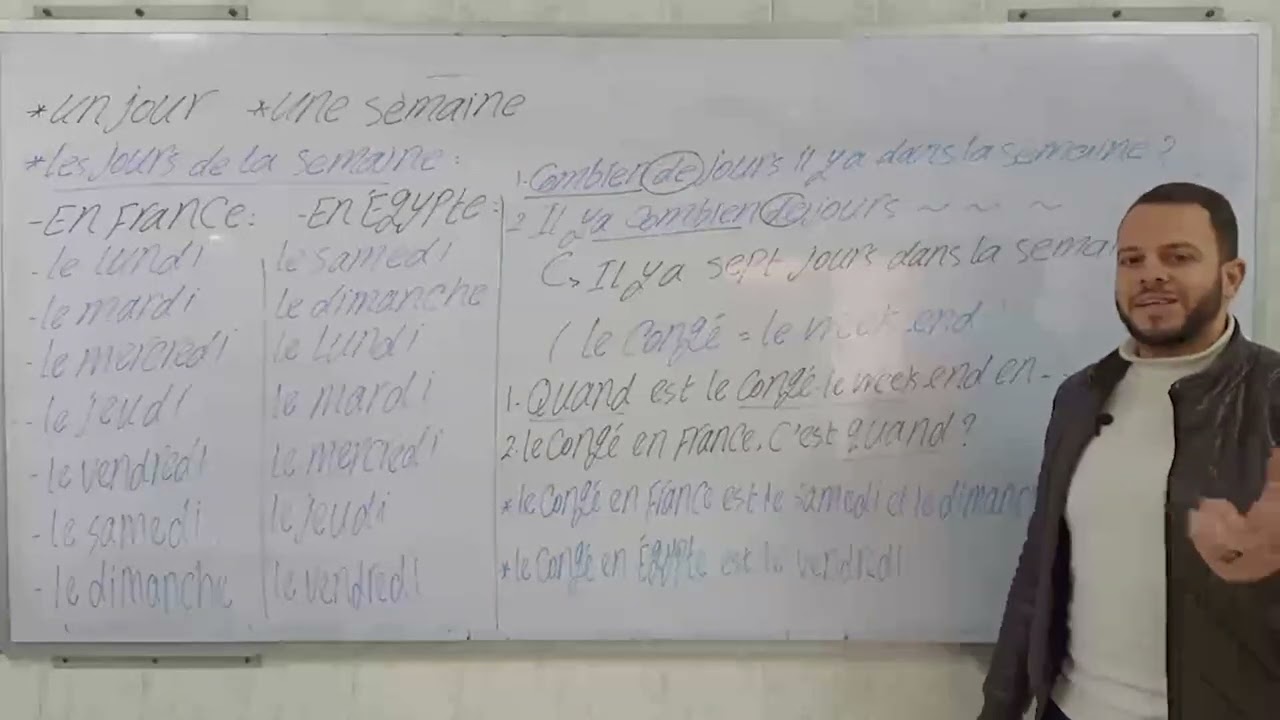 *un jour *une semaine
*les jours de la semaine:
-En France: -En Égypte:
-le lundi
-le mardi
-le mercredi
-le jeudi
-le vendredi
-le samedi
-le dimanche
le samedi
le dimanche
le lundi
le mardi
le mercredi
le jeudi
le vendredi
1-Combien de jours il y a dans la semaine?
2 Il y a combien de jours ~ ~ ~
Il y a sept jours dans la
( le congé = le week-end
1-Quand est le congé-le week-end en--
2-le congé en France. C'est quand?
*le congé en France est le samedi et le
*le congé en Égypte est le vendredi